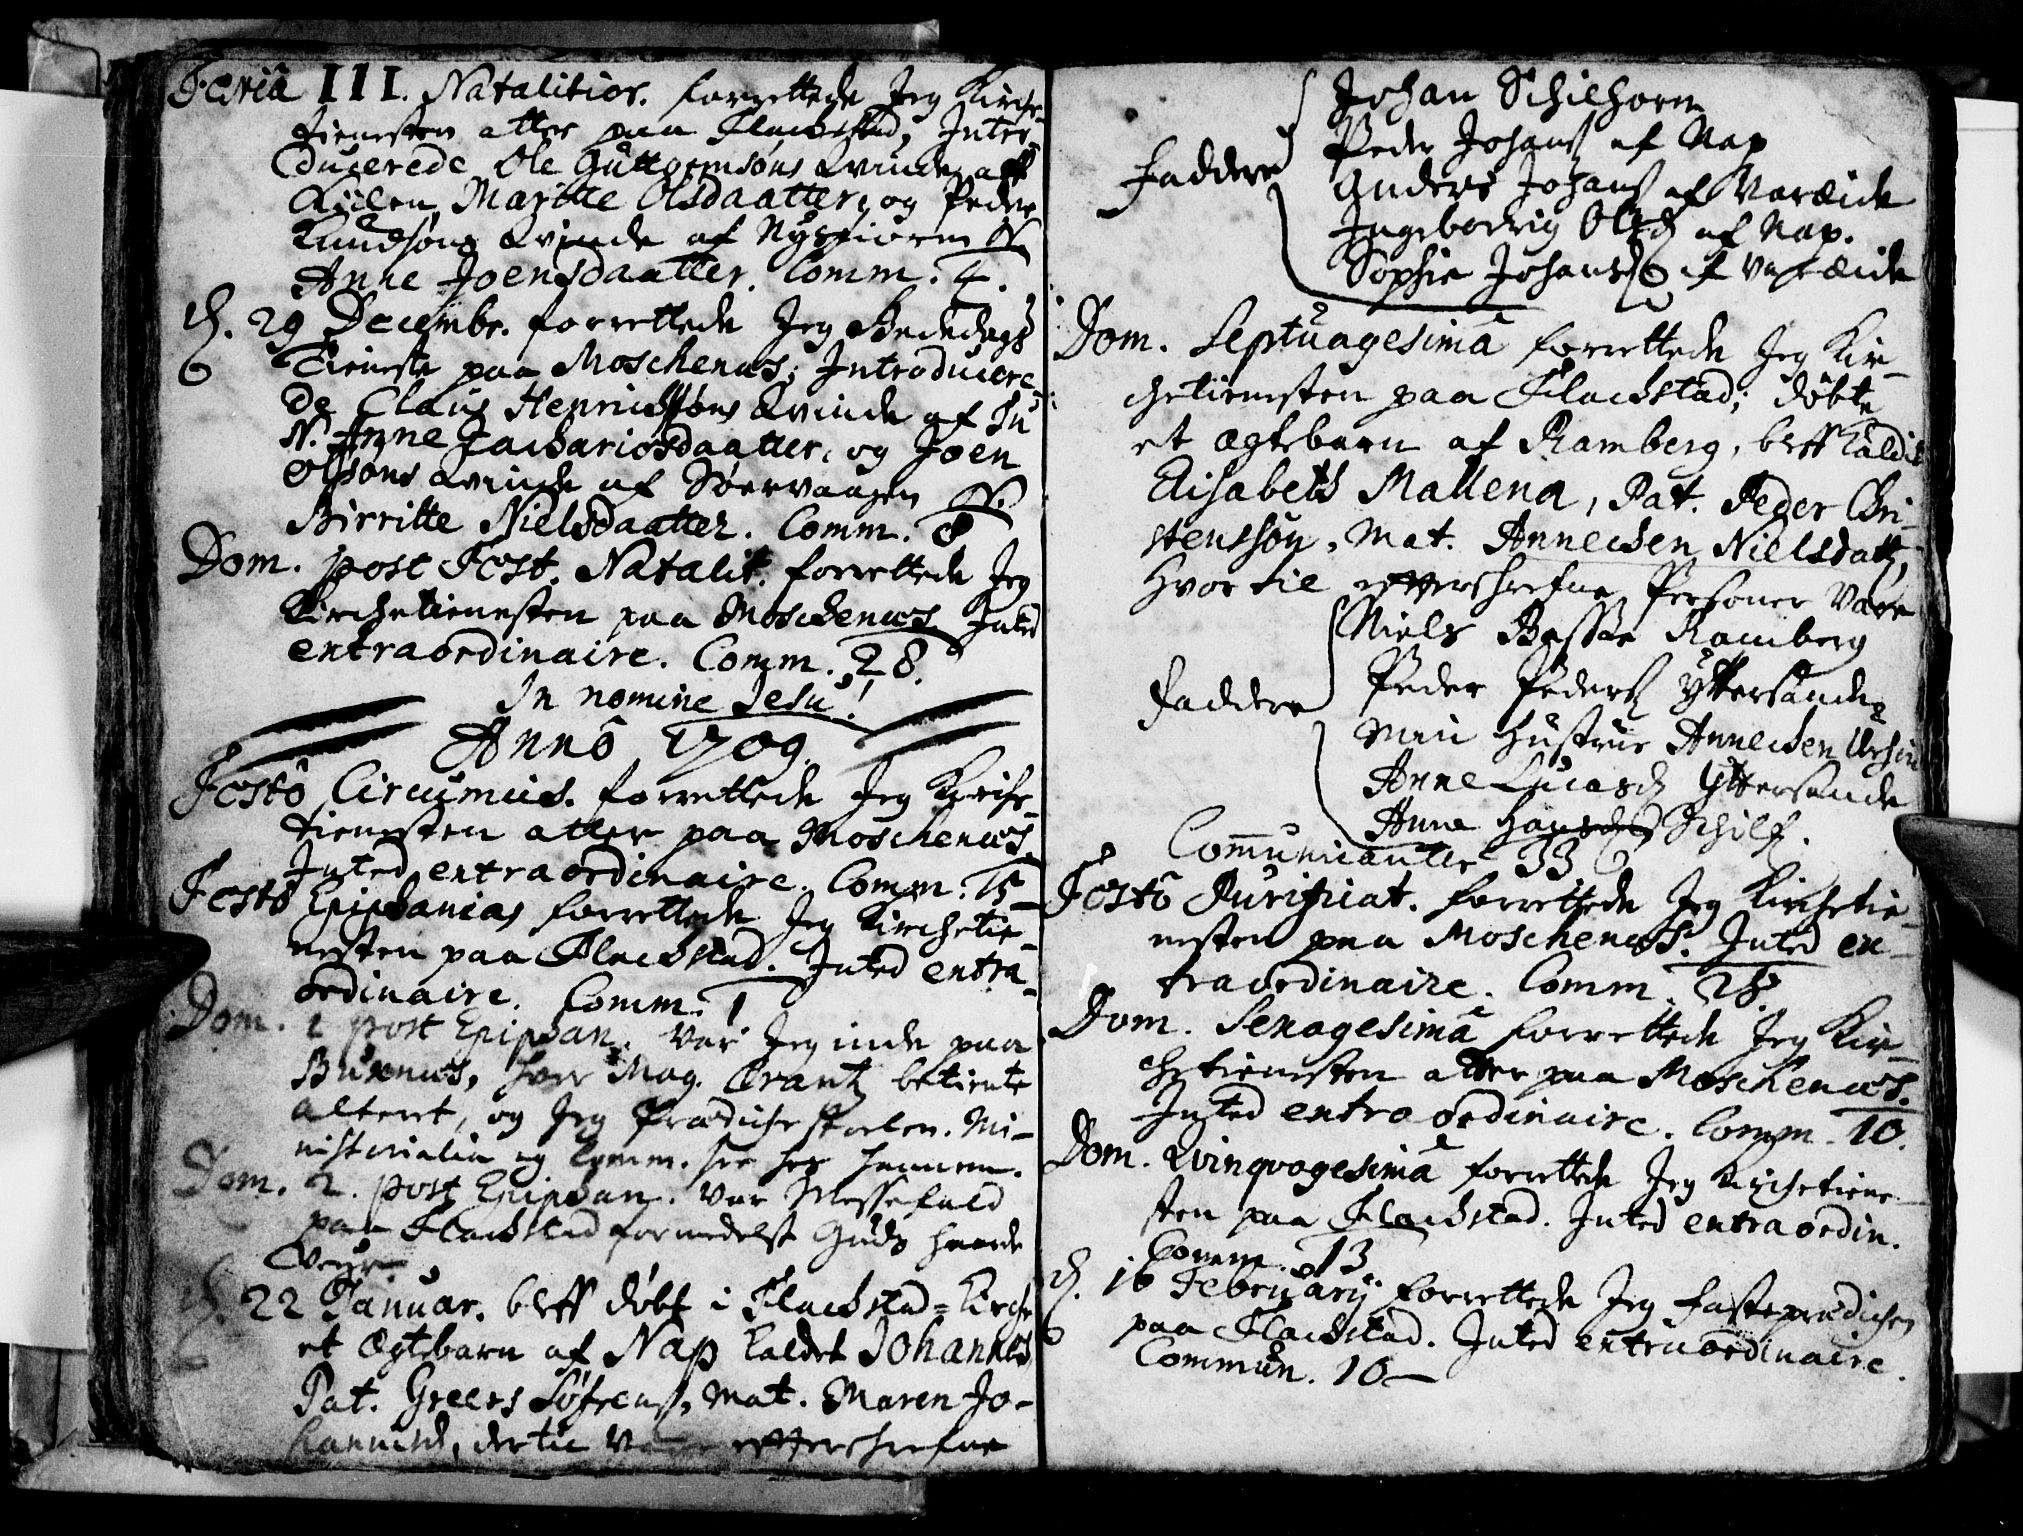 Feriâ III. Natalitior. forrettede Jeg Kirche-
tienesten atter paa Flackstad, Intro-
ducerede Ole Guttormsøns Qvinde aff
Maritte Olsdaatter, og Peder
Knudsøns Qvinde af Nysfiorn N.
Anne Joensdaatter. Comm. 4.
d. 29 Decembr. forrettede Jeg Bededags
Tieneste paa Moschenæs; Introducere-
de Claus Henrichsøns Qvinde af
N. Anne Zachariosdaatter, og Joen
Olsøns Qvinde af Sørvaagen N.
Birritte Nielsdaatter. Comm. 8
Dom. post Fest. Natalit. forrettede Jeg
Kirchetienesten paa Moschenæs. Inted
extraordinaire. Comm. 28.
In nomine Jesu!
Annô 1709.
Festô Circumcis. forrettede Jeg Kirche-
tienesten atter paa Moschenæs.
Inted extraordinaire. Comm. 15
Festô Epiphanias forrettede Jeg Kirchetie-
nesten paa Flackstad. Inted extra-
ordinaire. Comm. 1
Dom. 1 post Epiphan. var Jeg inde paa
Buxnæs, hvor Mag. Crantz betiente
Alteret, og Jeg Prædichestoelen. Mi-
nisterialia og Comm. see hos hannem.
Dom. 2. post Epiphan. var Messefald
paa Flackstad formedelst Guds haarde
Veyr.
d. 22 Januar. bleff døbt i Flackstad-Kirche
et Ægtebarn af Nap kaldet Johannes
Pat. Greers Søfrens, Mat. Maren Jo-
hannisd, dertil vare effterskrefne
Johan Schielhorn
Peder Johans af Nap
Faddere Anders Johans af Varæide
Ingeborrig Olsd af Nap.
Sophie Johansd af Varæide
Dom. Septuagesimâ forrettede Jeg Kir-
chetienesten paa Flackstad; døbte
et Ægtebarn af Ramberg, bleff kaldit
Elisabeth Mallena, Pat. Peder Chri-
stenssøn, Mat. Annechen Nielsdatt,
Hvortil effterskrefne Personer vare
Niels Basse Ramberg
Peder Peders Yttersande
Faddere Min Hustrue Annechen
Anne Lucasd Yttersande
Anne Hansd
Communicanter 33
Festô Purificat. forrettede Jeg Kirchetie-
nesten paa Moschenæs. Inted ex-
traordinaire. Comm. 28.
Dom. Sexagesimâ forrettede Jeg Kir-
chetienesten atter paa Moschenæs.
Inted extraordinaire. Comm. 10.
Dom. Qvinqvagesimâ forrettede Jeg Kirchetiene-
sten paa Flackstad. Inted extraordin.
Comm. 13
d. 16 February forrettede Jeg fasteprædichen
paa Flackstad. Inted extraordinaire.
Commun. 10